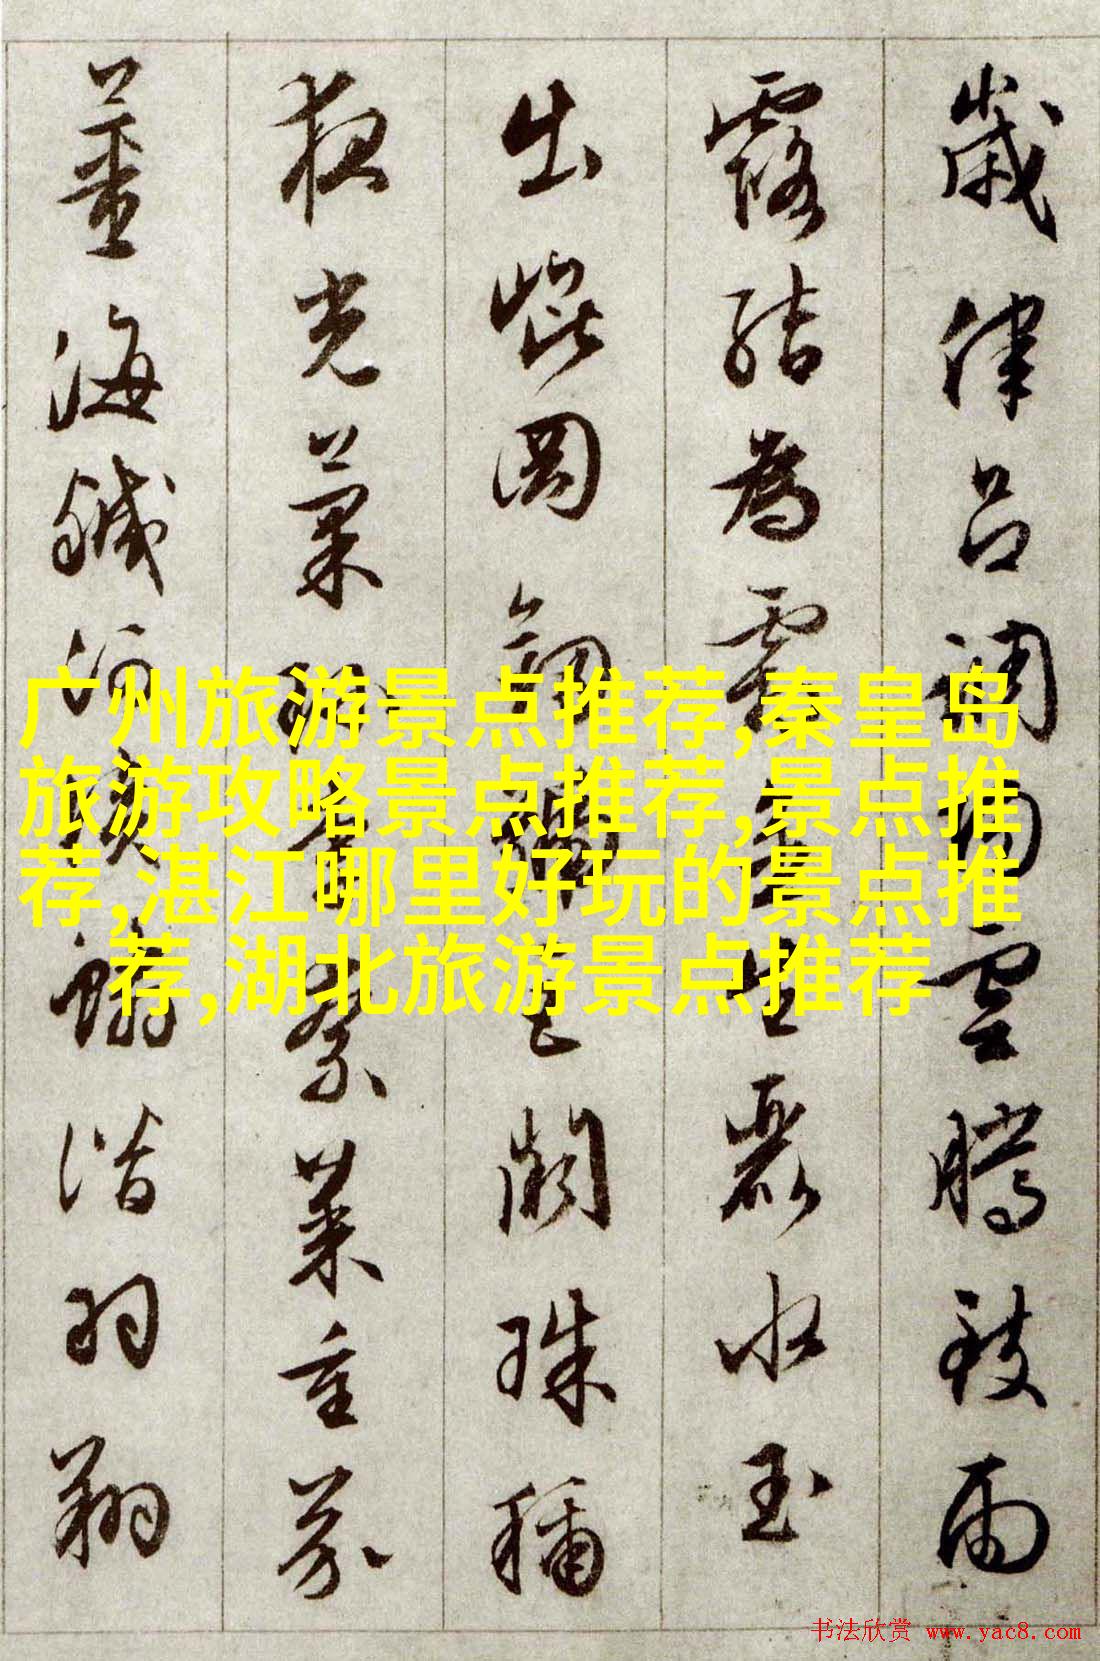 歲律呂調陽雲騰致雨
露結為霜金生麗水玉
出崐岡劍號巨闕珠稱
夜光菓珍李柰菜重芥
薑海鹹河淡鱗潛羽翔
广州旅游景点推荐,秦皇岛
旅游攻略景点推荐,景点推
荐,湛江哪里好玩的景点推
荐,湖北旅游景点推荐
书法欣赏 www.yac8.com